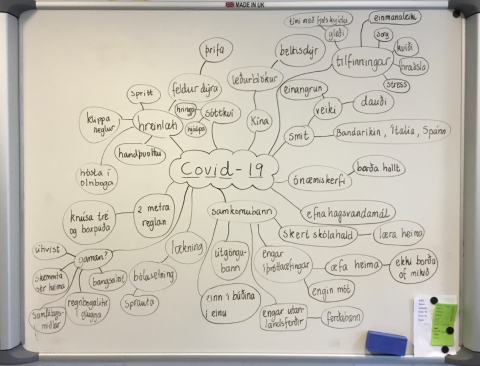 MADE IN UK
tími með fjölskyldu
einmanaleiki
gleði
sorg
kvíði
hræðsla
stress
tilfinningar
beltisdýr
leðurblökur
Kína
þrífa
feldur dýra
spritt
klippa
neglur
hreinlæti
hringja
hjálpa
sóttkví
einangrun
veiki
dauði
smit
Bandaríkin, Ítalía, Spánn
handþvottur
hósta í
olnboga
Covid-19
ónæmiskerfi
borða hollt
2 metra
reglan
knúsa tré
og borða
samkomubann
efnahagsvandamál
skert skólahald
læra heima
lækning
bólusetning
sprauta
útgöngu-
bann
einn í búðina
í einu
engar
íþróttaæfingar
æfa heima
ekki borða
of mikið
engin mót
engar utan-
landsferðir
ferðabann
gaman?
óhvist
skemmta
sér heima
samfélags-
miðlar
regnbogalitir
glugga
bangsaleit